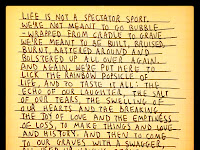 LIFE IS NOT A SPECTATOR SPORT.
WE'RE NOT MEANT TO GO BUBBLE
-WRAPPED FROM CRADLE TO GRAVE
WE'RE MEANT TO BE BUILT, BRUISED,
BURNT, BATTERED AROUND AND
BOLSTERED UP ALL OVER AGAIN.
AND AGAIN. WE'RE PUT HERE TO
LICK THE RAINBOW POPSICLE OF
LIFE, AND TO TASTE IT ALL: THE
ECHO OF OUR LAUGHTER, THE SALT
OF OUR TEARS, THE SWELLING OF
OUR HEARTS AND THE BREAKING.
THE JOY OF LOVE AND THE EMPTINESS
OF LOSS. TO MAKE THINGS AND LOVE
AND HISTORY. AND THEN TO COME
TO OUR GRAVES WITH A SWAGGER,